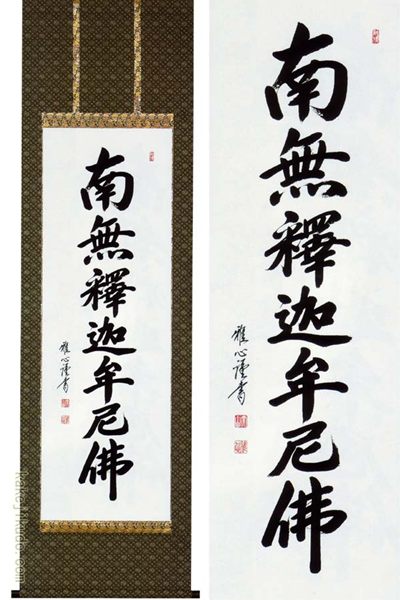 南無釋迦牟尼佛
雅心謹書
南無釋迦牟尼佛
雅心謹書